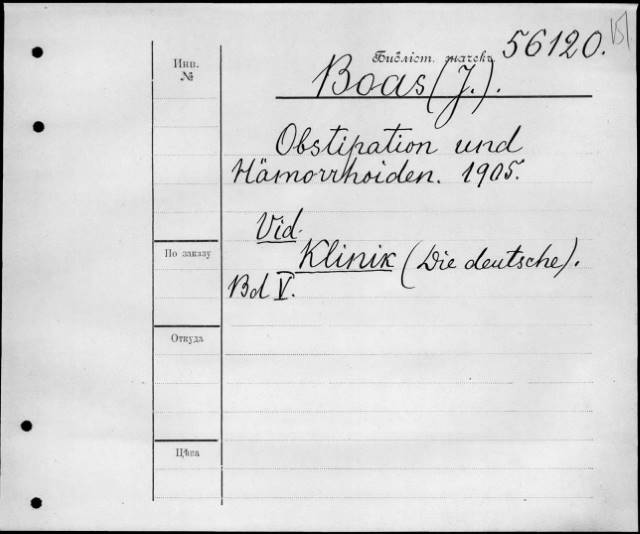 15
56120.
Инв.
№
Библіот. марскъ
Boas (J.).
Obstipation und
Hämorrhoiden. 1905.
Vid.
По заказу
Klinik (Die deutsche).
Bd V.
Откуда
Цѣна